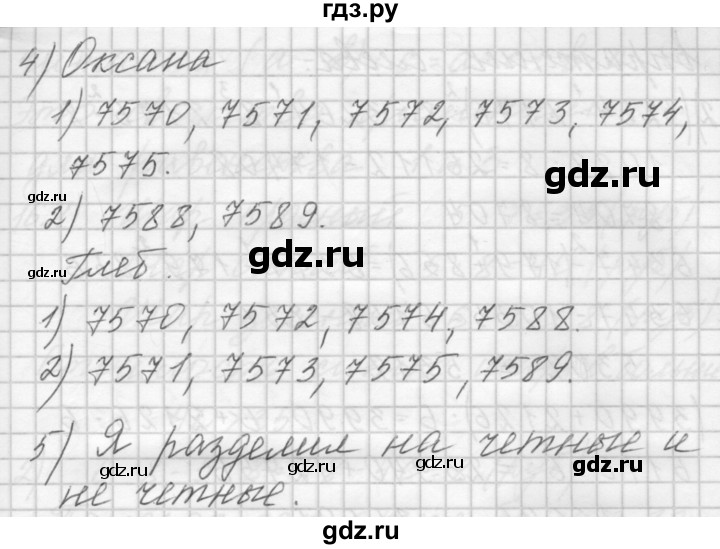 гдз.ру
4) Оксана
1) 7570, 7571, 7572, 7573, 7574,
7575.
gdz.ru
gdz.ru
2) 7588, 7589.
gdz.ru
Глеб.
gdz.ru
1) 7570, 7572, 7574, 7588.
2) 7571, 7573, 7575, 7589.
5) Я разделил на четные и
gdz.ru gdz.ru gdz.ru gdz.ru
не четные.
gdz.ru